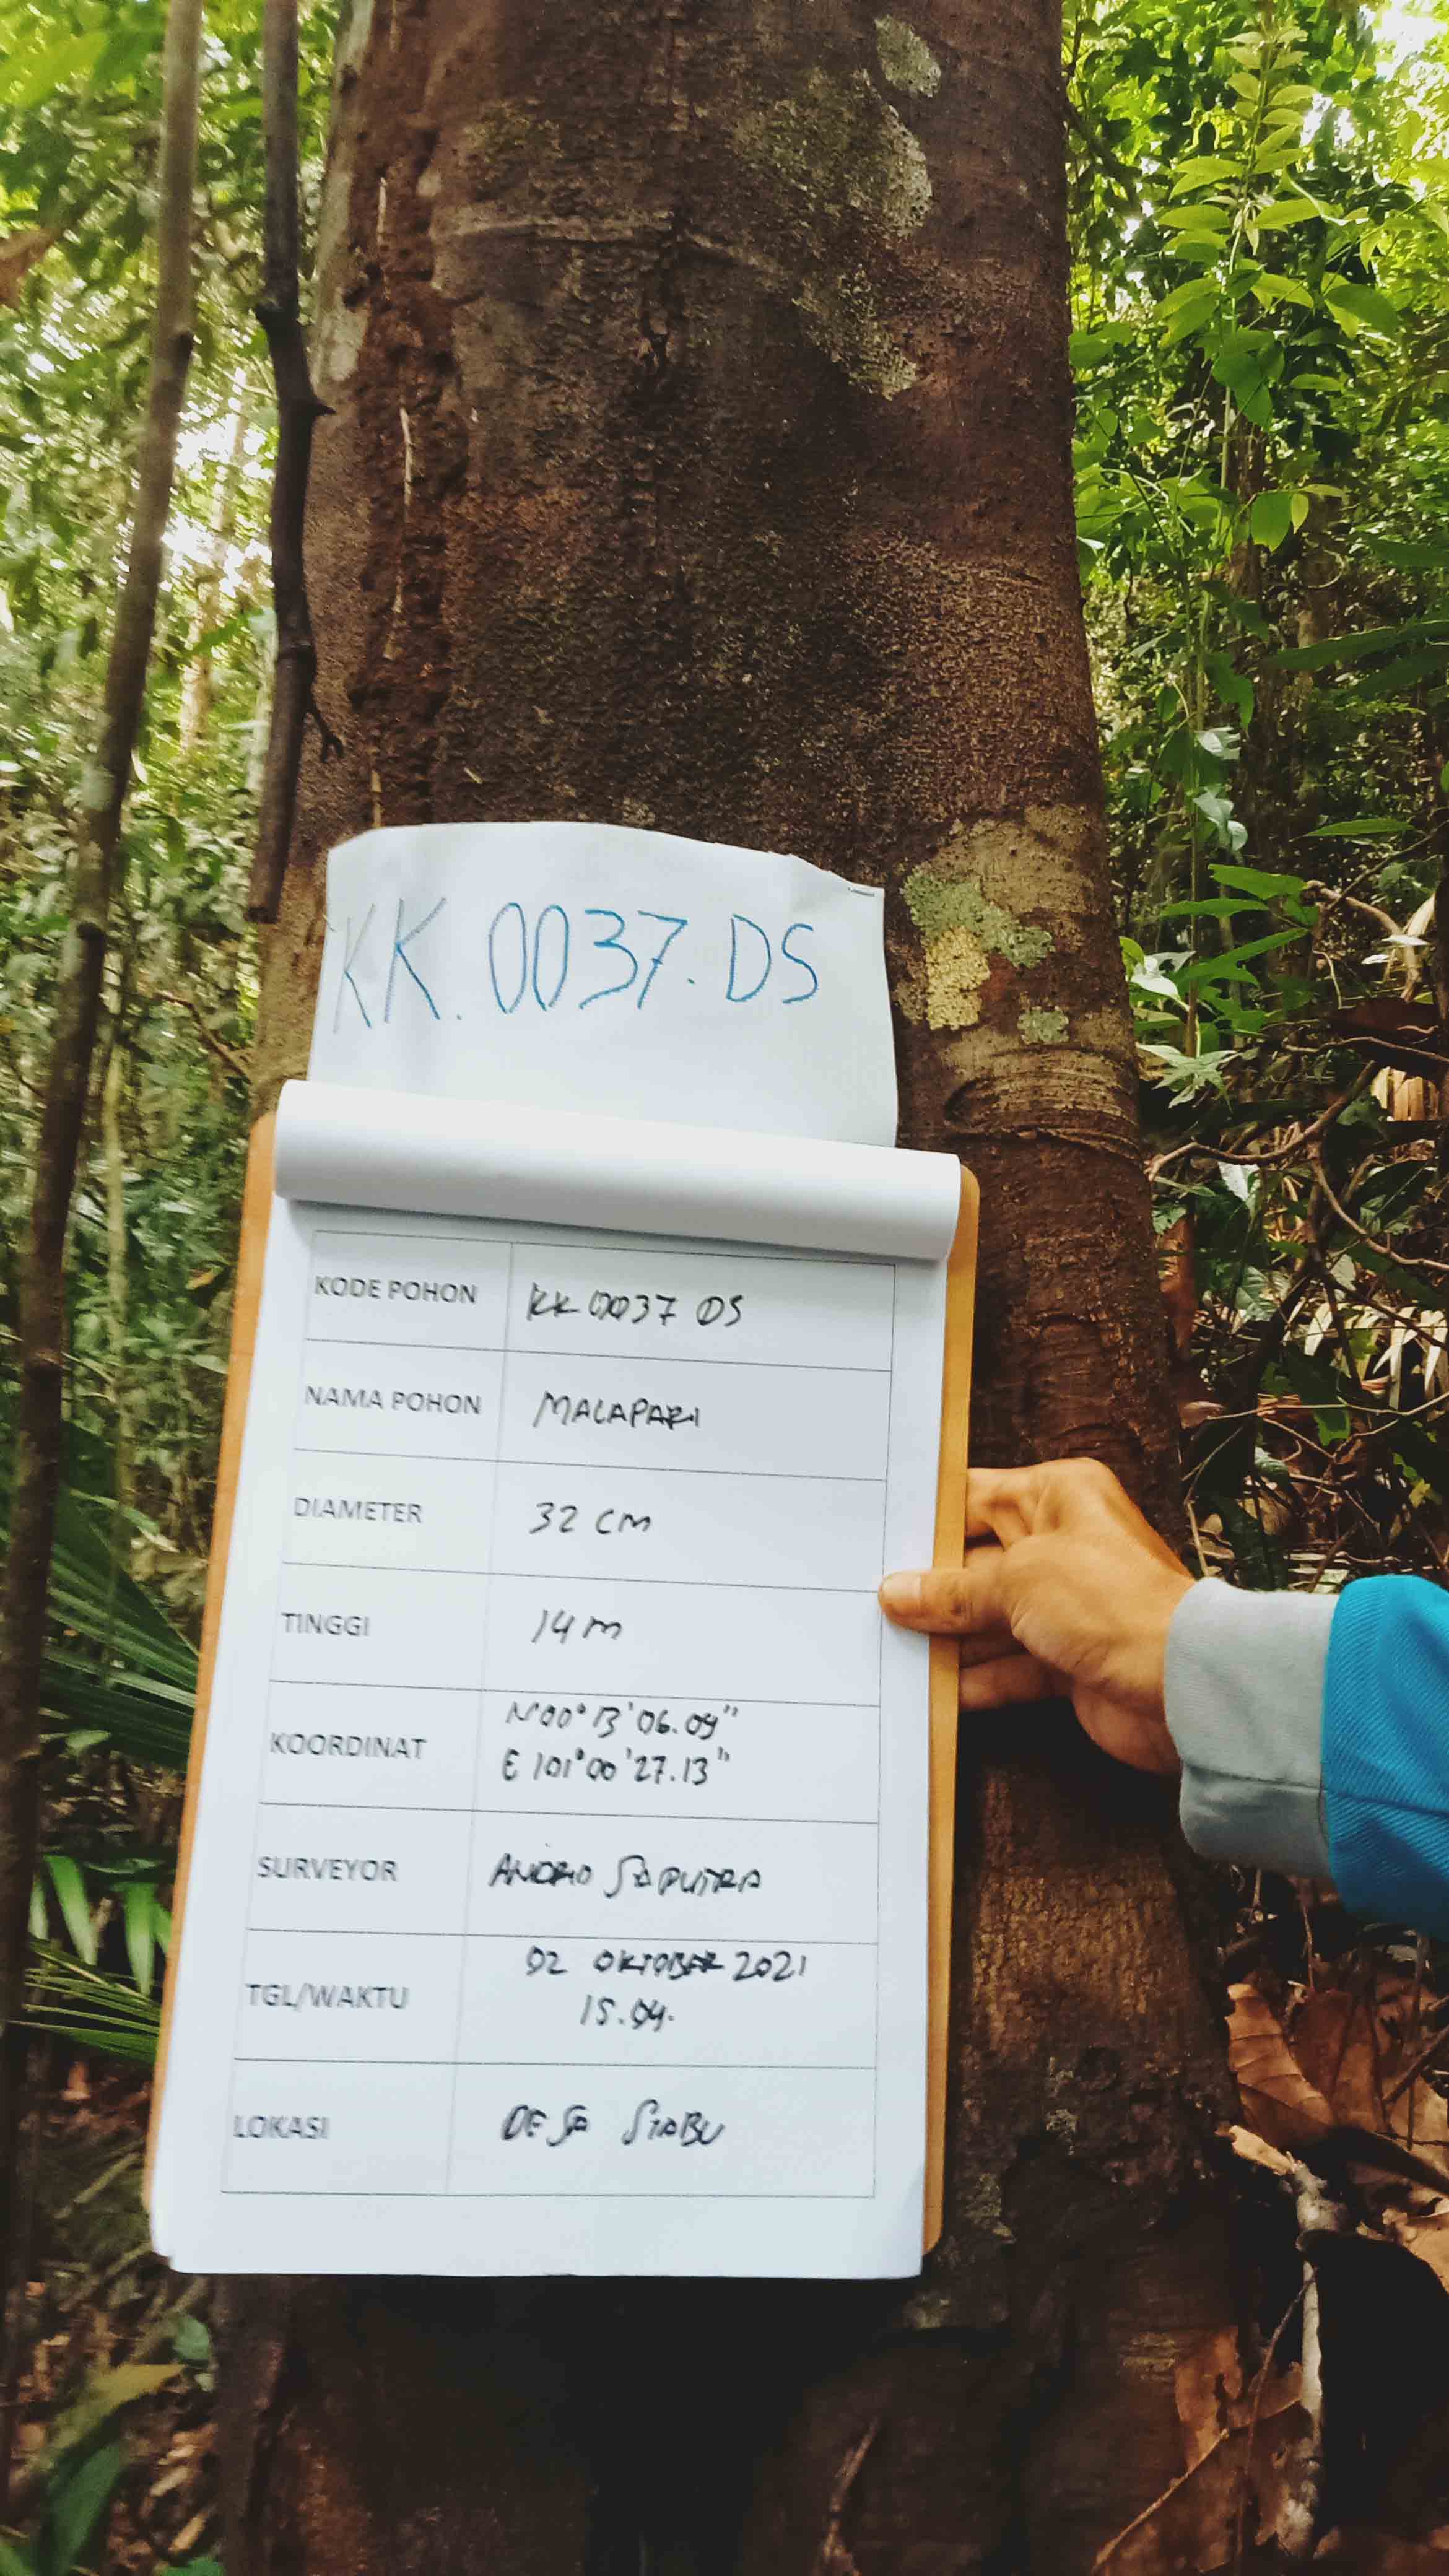 KK.0037.DS
KODE POHON KK 0037 DS
NAMA POHON MALAPARI
DIAMETER 32 cm
TINGGI 14 m
KOORDINAT N 00° 13' 06.09"
E 101° 00' 27.13"
SURVEYOR SAPUTRA
TGL/WAKTU 02 OKTOBER 2021
15.04.
LOKASI DESA SIABU